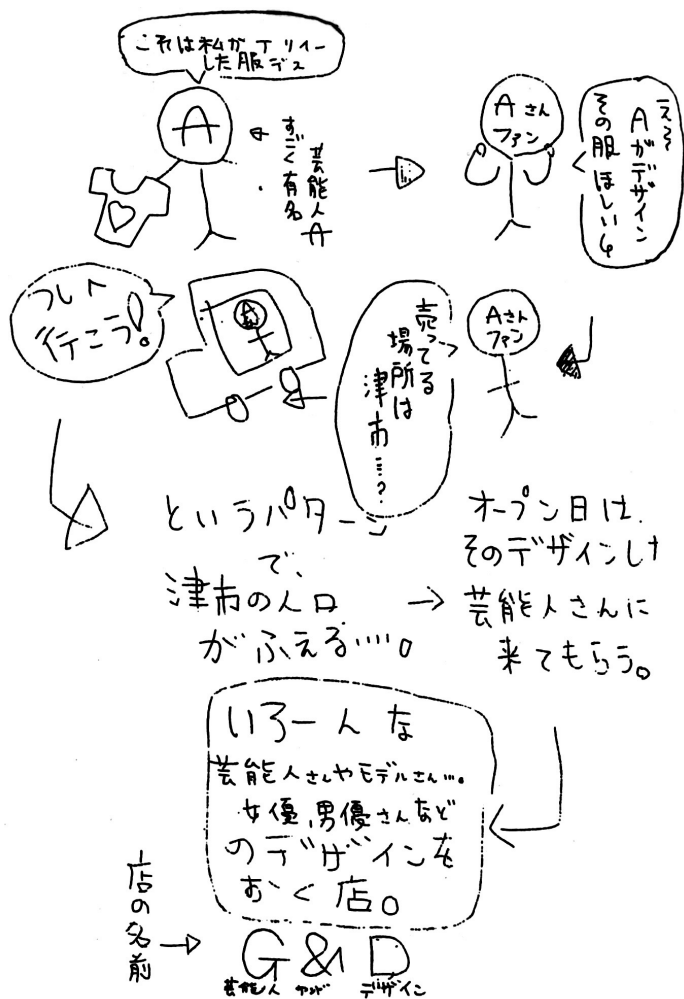 これは私がデザイン
した服デス
A
すごく有名
芸能人A
Aさん
ファン
ええ
Aがデザイン
その服ほしい
Aさん
ファン
売ってる
場所は
津市…?
A
行こう!
というパターン
で、
津市の人口
がふえる….。
オープン日は、
そのデザインした
芸能人さんに
来てもらう。
いろーんな
芸能人さんやモデルさん…。
女優、男優さんなど
のデザインを
おく店。
店の名前
G&D
芸能人 アンド デザイン